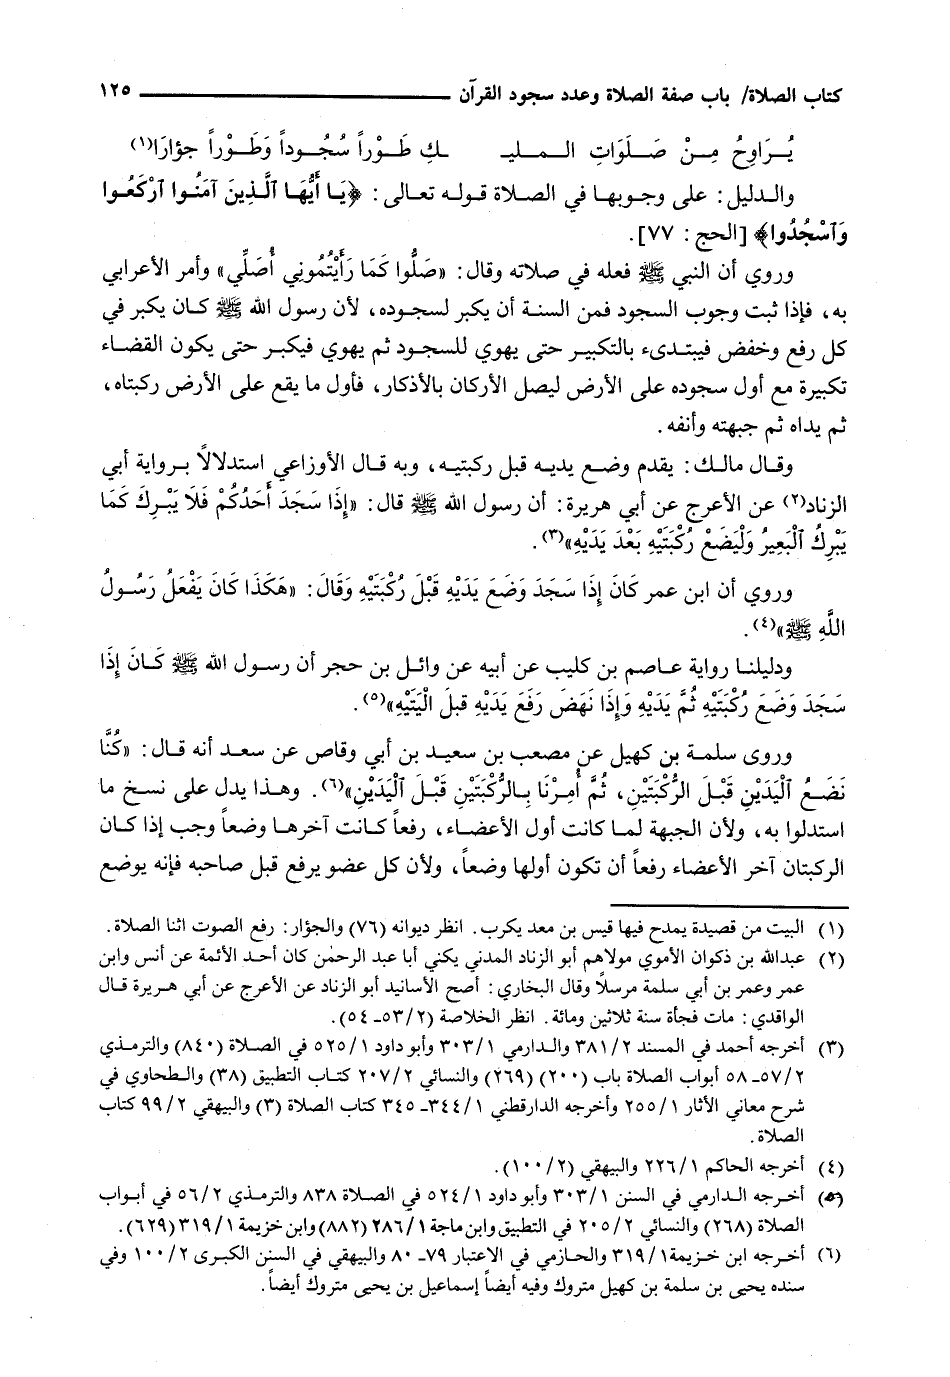 كتاب الصلاة/ باب صفة الصلاة وعدد سجود القرآن ١٢٥
يُرَاوِحُ مِنْ صَلَوَاتِ الـمـليـ ـكِ طَوْراً سُجُوداً وَطَوْراً جؤارَا(١)
والدليل: على وجوبها في الصلاة قوله تعالى: ﴿يَا أَيُّهَا ٱلَّذِينَ آمَنُوا ٱرْكَعُوا
وَٱسْجُدُوا﴾ [الحج: ٧٧].
وروي أن النبي ﷺ فعله في صلاته وقال: «صَلُّوا كَمَا رَأَيْتُمُونِي أُصَلِّي» وأمر الأعرابي
به، فإذا ثبت وجوب السجود فمن السنة أن يكبر لسجوده، لأن رسول الله ﷺ كان يكبر في
كل رفع وخفض فيبتدىء بالتكبير حتى يهوي للسجود ثم يهوي فيكبر حتى يكون القضاء
تكبيرة مع أول سجوده على الأرض ليصل الأركان بالأذكار، فأول ما يقع على الأرض ركبتاه،
ثم يداه ثم جبهته وأنفه.
وقال مالك: يقدم وضع يديه قبل ركبتيه، وبه قال الأوزاعي استدلالاً برواية أبي
الزناد(٢) عن الأعرج عن أبي هريرة: أن رسول الله ﷺ قال: «إِذَا سَجَدَ أَحَدُكُمْ فَلَا يَبْرِكَ كَمَا
يَبْرِكُ ٱلْبَعِيرُ وَلْيَضَعْ رُكْبَتَيْهِ بَعْدَ يَدَيْهِ»(٣).
وروي أن ابن عمر كَانَ إِذَا سَجَدَ وَضَعَ يَدَيْهِ قَبْلَ رُكْبَتَيْهِ وَقَالَ: «هَكَذَا كَانَ يَفْعَلُ رَسُولُ
اللَّهِ ﷺ»(٤).
ودليلنا رواية عاصم بن كليب عن أبيه عن وائل بن حجر أن رسول الله ﷺ كَانَ إِذَا
سَجَدَ وَضَعَ رُكْبَتَيْهِ ثُمَّ يَدَيْهِ وَإِذَا نَهَضَ رَفَعَ يَدَيْهِ قبلَ الْيَتَيْهِ»(٥).
وروى سلمة بن كهيل عن مصعب بن سعيد بن أبي وقاص عن سعد أنه قال: «كُنَّا
نَضَعُ ٱلْيَدَيْنِ قَبْلَ الرُّكْبَتَيْنِ، ثُمَّ أُمِرْنَا بِالرُّكْبَتَيْنِ قَبْلَ ٱلْيَدَيْنِ»(٦). وهذا يدل على نسخ ما
استدلوا به، ولأن الجبهة لما كانت أول الأعضاء، رفعاً كانت آخرها وضعاً وجب إذا كان
الركبتان آخر الأعضاء رفعاً أن تكون أولها وضعاً، ولأن كل عضو يرفع قبل صاحبه فإنه يوضع
(١) البيت من قصيدة يمدح فيها قيس بن معد يكرب. انظر ديوانه (٧٦) والجؤار: رفع الصوت اثنا الصلاة.
(٢) عبدالله بن ذكوان الأموي مولاهم أبو الزناد المدني يكني أبا عبد الرحمٰن كان أحد الأئمة عن أنس وابن
عمر وعمر بن أبي سلمة مرسلاً وقال البخاري: أصح الأسانيد أبو الزناد عن الأعرج عن أبي هريرة قال
الواقدي: مات فجأة سنة ثلاثين ومائة. انظر الخلاصة (٢/ ٥٣ـ ٥٤).
(٣) أخرجه أحمد في المسند ٢/ ٣٨١ والدارمي ١/ ٣٠٣ وأبو داود ١/ ٥٢٥ في الصلاة (٨٤٠) والترمذي
٢/ ٥٧ـ ٥٨ أبواب الصلاة باب (٢٠٠) (٢٦٩) والنسائي ٢/ ٢٠٧ كتاب التطبيق (٣٨) والطحاوي في
شرح معاني الأثار ١/ ٢٥٥ وأخرجه الدارقطني ١/ ٣٤٤ـ ٣٤٥ كتاب الصلاة (٣) والبيهقي ٢/ ٩٩ كتاب
الصلاة.
(٤) أخرجه الحاكم ١/ ٢٢٦ والبيهقي (٢/ ١٠٠).
(٥) أخرجه الدارمي في السنن ١/ ٣٠٣ وأبو داود ١/ ٥٢٤ في الصلاة ٨٣٨ والترمذي ٢/ ٥٦ في أبواب
الصلاة (٢٦٨) والنسائي ٢/ ٢٠٥ في التطبيق وابن ماجة ١/ ٢٨٦ (٨٨٢) وابن خزيمة ١/ ٣١٩ (٦٢٩).
(٦) أخرجه ابن خزيمة ١/ ٣١٩ والحازمي في الاعتبار ٧٩ـ ٨٠ والبيهقي في السنن الكبرى ٢/ ١٠٠ وفي
سنده يحيى بن سلمة بن كهيل متروك وفيه أيضاً إسماعيل بن يحيى متروك أيضاً.